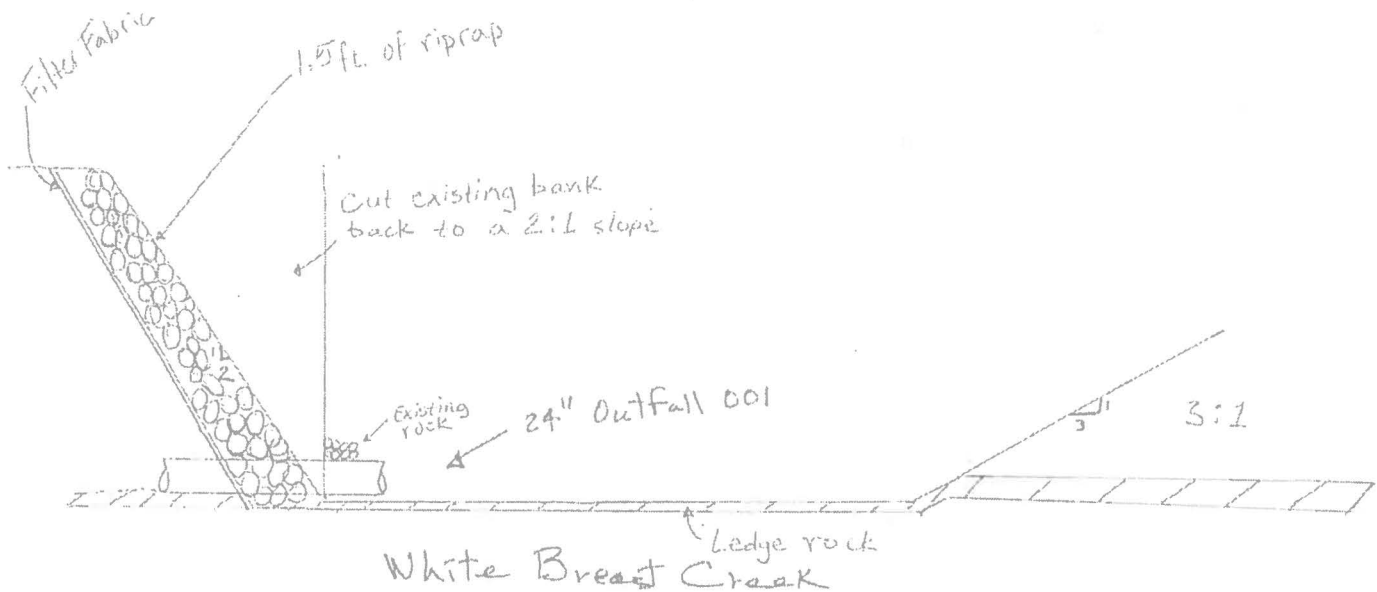 Filter Fabric
1.5 ft. of riprap
Cut existing bank
back to a 2:1 slope
1
2
Existing
rock
24" Outfall 001
1
3
3:1
Ledge rock
White Breast Creek